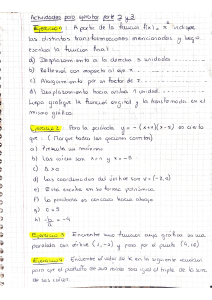 Actividades para ejercitar parte 2 y 3
Ejercicio 1: A partir de la función f(x) = x² indique
las distintas transformaciones mencionadas y luego
escriba la función final:
a) Desplazamiento a la derecha 3 unidades
b) Reflexión con respecto al eje x
c) Alargamiento por un factor de
d) Desplazamiento hacia arriba 1 unidad.
Luego grafique la función original y la transformada en el
mismo gráfico.
Ejercicio 2: Para la parábola y = -(x+1)(x-5) es cierto
que: (Marque todas las opciones correctas)
a) Presenta un máximo
b) Las raíces son x=1 y x=-5
c) Δ>0
d) Las coordenadas del vértice son V=(-2,0)
e) Está escrita en su forma
f) La parábola es cóncava hacia abajo
g) C=5
h) = -5
Ejercicio 3: Encuentre una función cuya gráfica es una
parábola con vértice (1,-2) y pasa por el punto (4,16)
Ejercicio 4: Encuentre el valor de k en la siguiente ecuación
para que el producto de sus raíces sea igual al triple de la suma
de sus raíces.